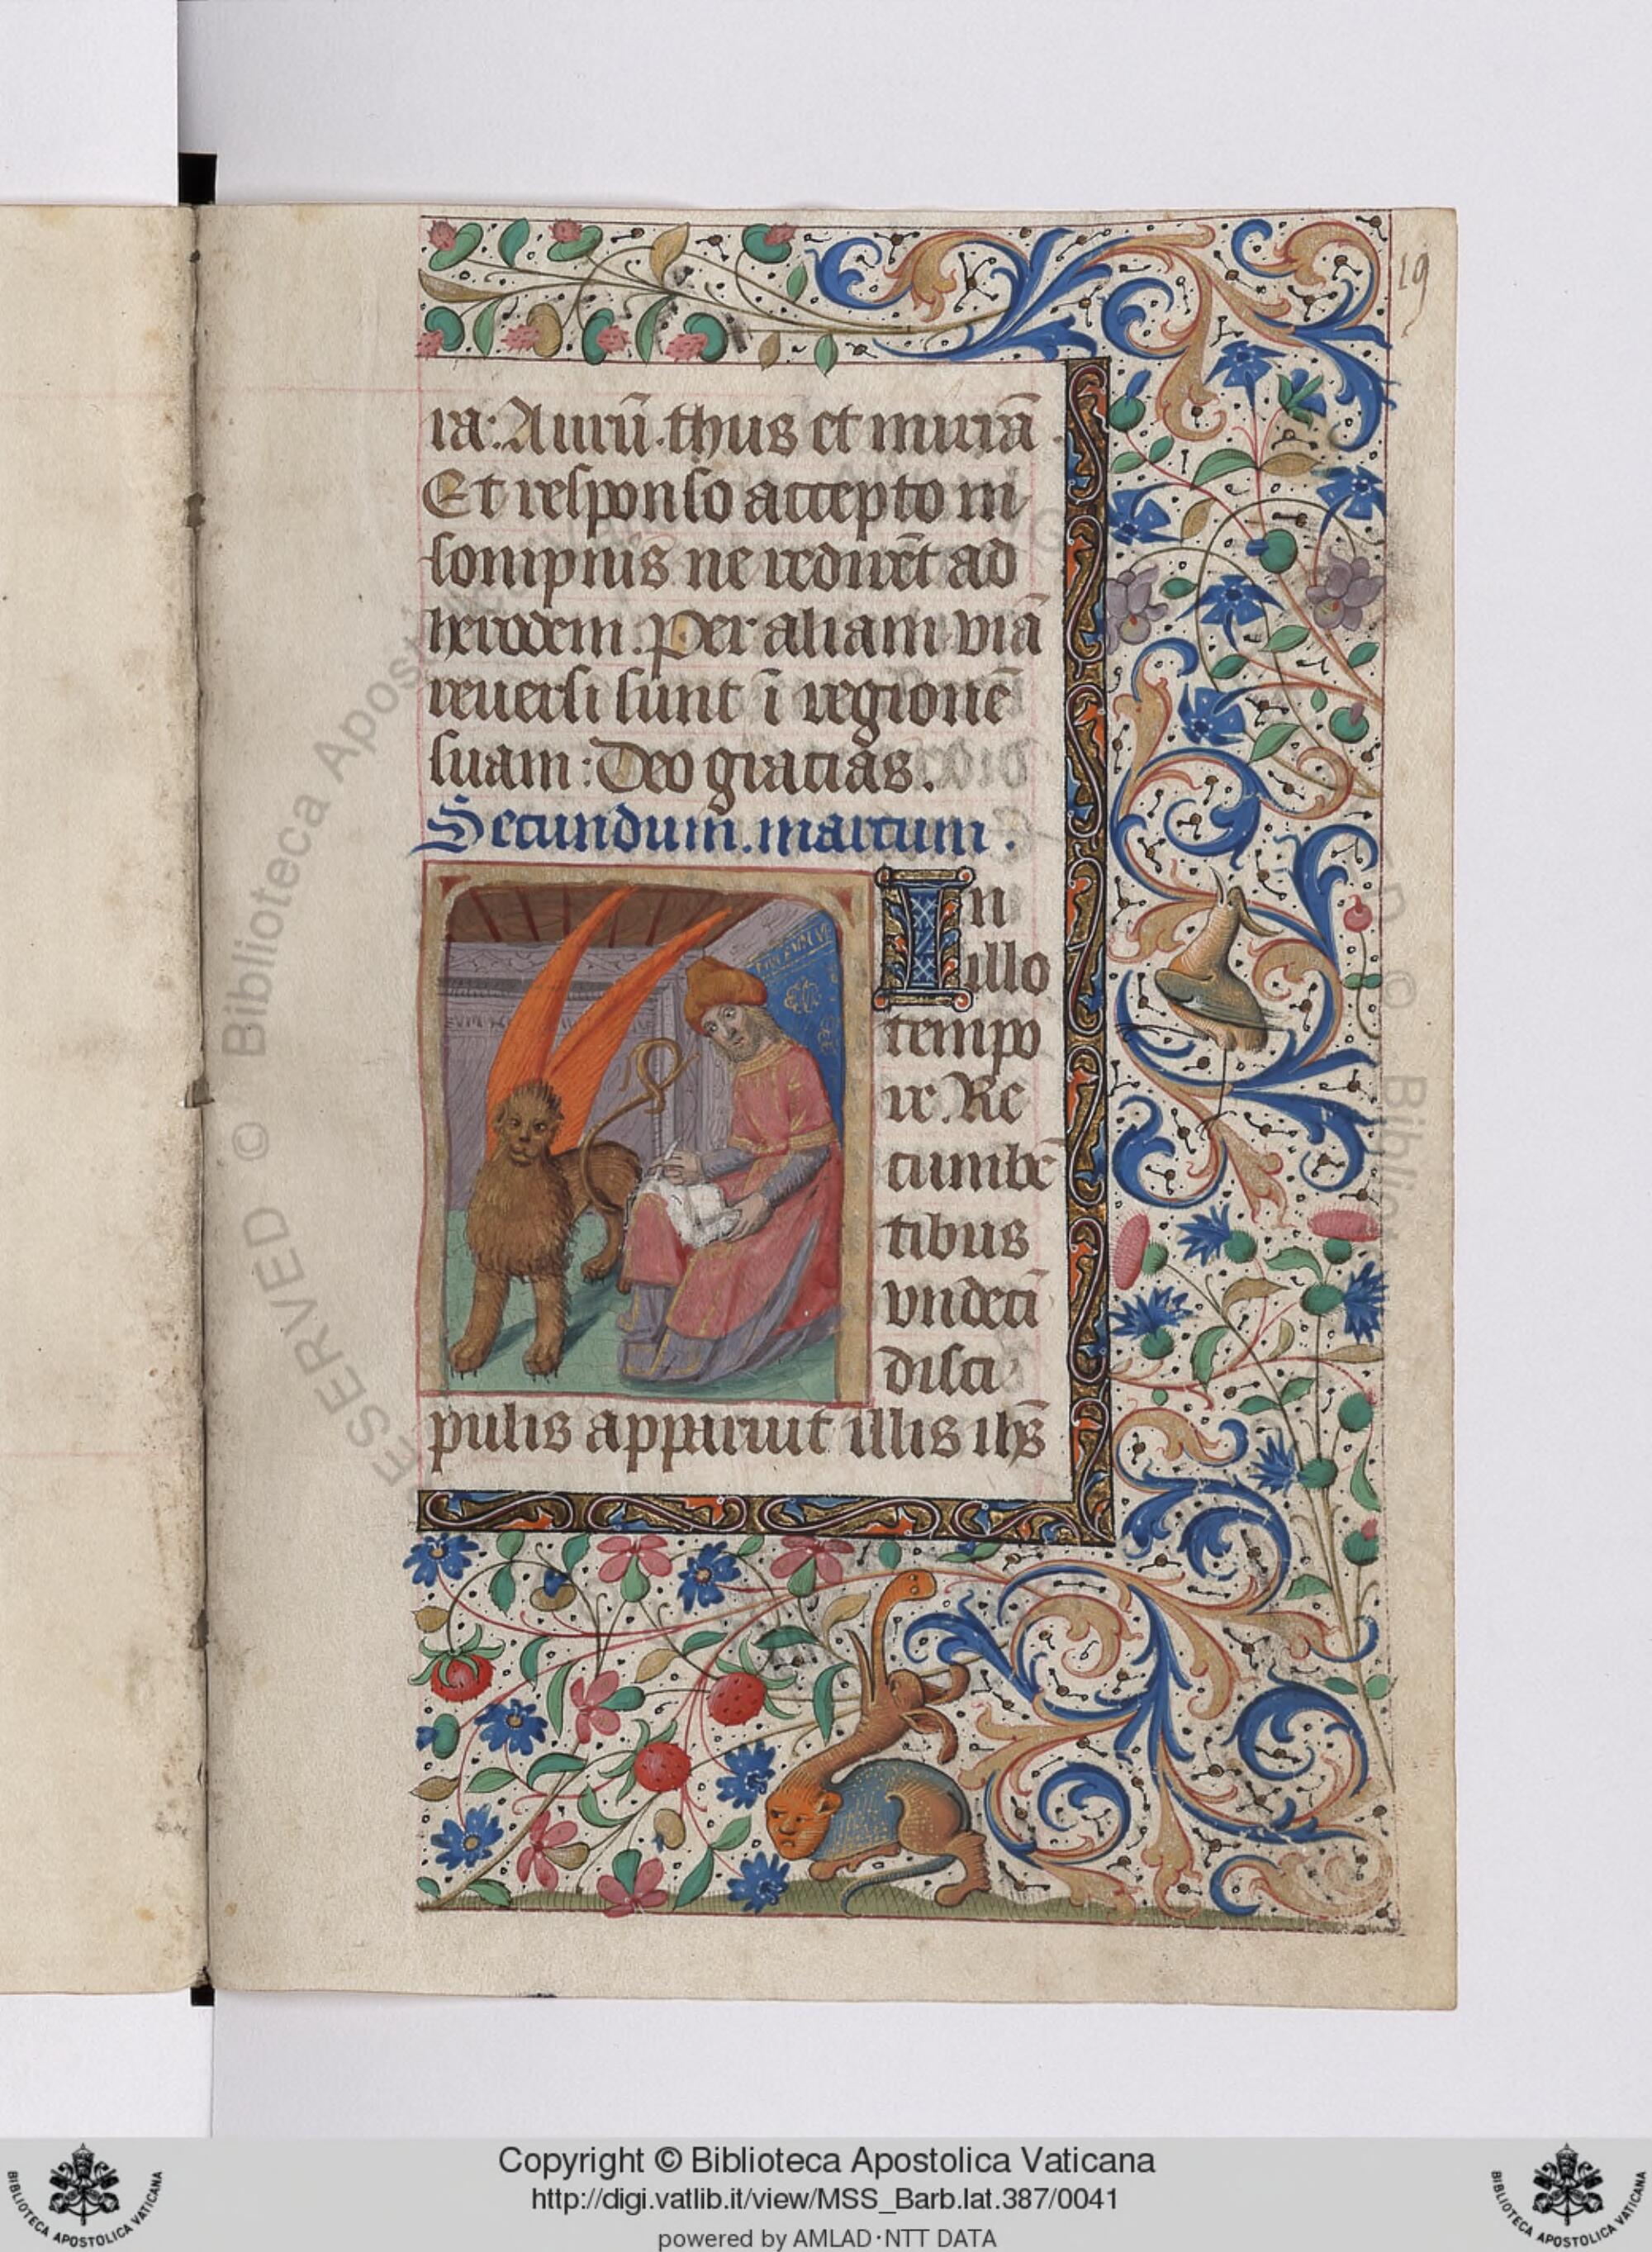 19
ra: Aurū. thus et mirrā.
Et responso accepto in
sompnis ne redirēt ad
herodem. Per aliam viā
reuersi sunt ī regionē
suam: Deo gracias.
Secundum. marcum.
In
illo
tempo
re. Re
cumbē
tibus
vndecī
disci
pulis apparuit illis ihs̄
ESERVED © Biblioteca Apost
Copyright © Biblioteca Apostolica Vaticana
http://digi.vatlib.it/view/MSS_Barb.lat.387/0041
powered by AMLAD·NTT DATA
BIBLIOTECA APOSTOLICA VATICANA
BIBLIOTECA APOSTOLICA VATICANA